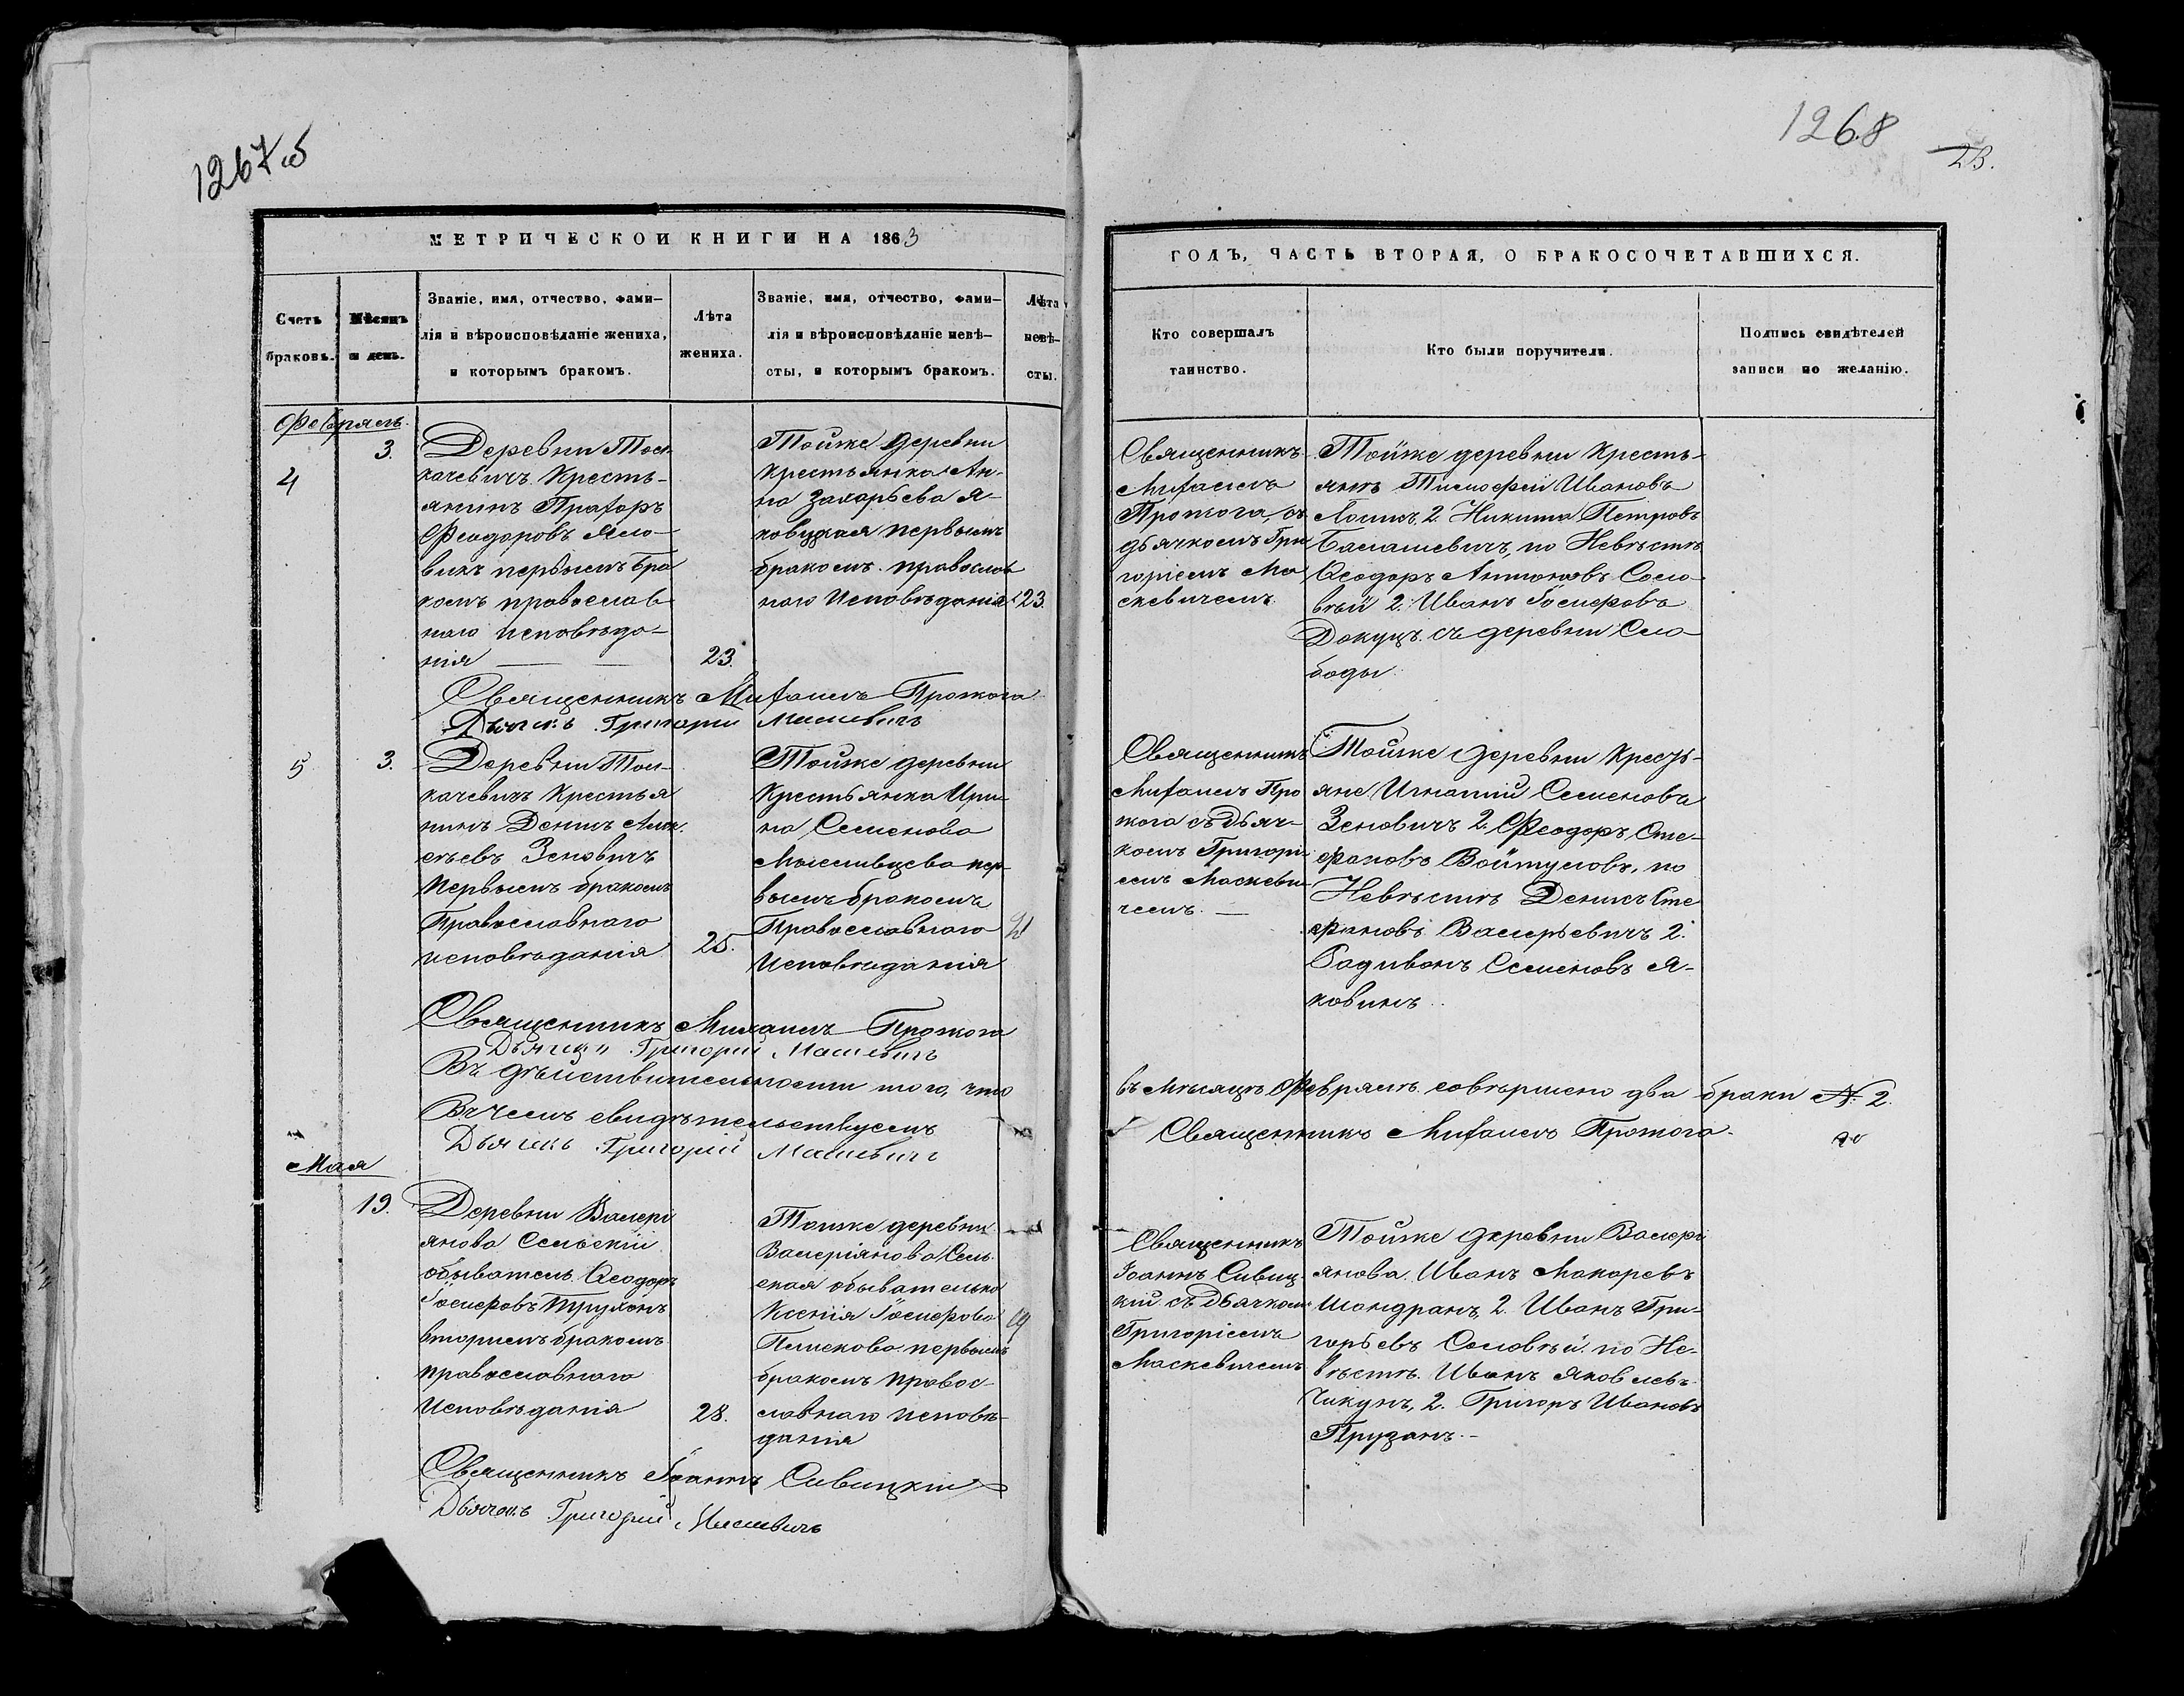 1267об
МЕТРИЧЕСКОЙ КНИГИ НА 1863
Счетъ браковъ.
Мѣсяцъ и день.
Званіе, имя, отчество, фами-
лія и вѣроисповѣданіе жениха,
и которымъ бракомъ.
Лѣта
жениха.
Званіе, имя, отчество, фами-
лія и вѣроисповѣданіе невѣ-
сты, и которымъ бракомъ.
Лѣта
невѣ-
сты.
Февраль.
4
3.
Деревни Тол-
качевичъ Кресть-
янинъ
Феодоровъ
викъ первымъ бра
комъ православ-
наго исповѣда-
нія
23.
Тойже деревни
Крестьянка Ан-
на Захарьева Я-
ковуцкая первымъ
бракомъ православ
наго Исповѣданія
23.
Священникъ Михаилъ Прожога
Дьячекъ Григорій
5
3.
Деревни Тол-
качевичъ Крестья
нинъ Денисъ Алек
сѣевъ Зеновичъ
Первымъ бракомъ
Православнаго
исповѣданія
25.
Тойже деревни
Крестьянка Ири-
на Семенова
Мысливцева пер-
вымъ бракомъ
Православнаго
Исповѣданія
21
Священникъ Михаилъ Прожога
Дьячекъ Григорій
Въ дѣйствительности того, что
Въ чемъ свидѣтельствуемъ
Дьячекъ Григорій
Мая
19.
Деревни Валері
янова Сельскій
обыватель Ѳеодоръ
Іосифовъ Труханъ
вторимъ бракомъ
православнаго
Исповѣданія
28.
Тойже деревни
Валеріянова Сель
ская обывателька
Ксенія Іосифова
первымъ
бракомъ правос-
лавнаго исповѣ-
данія
19
Священникъ Іоаннъ Сивицкій
Дьячекъ Григорій
1268
23.
ГОДЪ, ЧАСТЬ ВТОРАЯ, О БРАКОСОЧЕТАВШИХСЯ.
Кто совершалъ
таинство.
Кто были поручители.
Подпись свидѣтелей
записи по желанію.
Священникъ
Михаилъ
Прожога, съ
дьячкомъ Гри
горіемъ Ма
скевичемъ
Тойже деревни Кресть-
янъ Тимофей Ивановъ
2. Никита Петровъ
по Невѣстѣ
Ѳеодоръ Антоновъ Соло-
вѣй 2. Иванъ Іосифовъ
Докуцъ съ деревни Сло-
боды
Священникъ
Михаилъ Про
жога съ дьяч-
комъ Григорі-
емъ Маскеви-
чемъ.
Тойже деревни Кресть-
яне Игнатій Семеновъ
Зеновичъ 2. Феодоръ Сте-
фановъ Войтуловъ, по
Невѣстѣ Денисъ Сте
фановъ Валерьевичъ 2.
Радивонъ Семеновъ Я-
ковинъ
въ Мѣсяцѣ Февралѣ совѣршено два браки № 2.
Священникъ Михаилъ Прожога
Священникъ
Іоаннъ Сивиц-
кій съ дьячкомъ
Григоріемъ
Маскевичемъ
Тойже деревни Валері
янова. Иванъ Макаревъ
Шандранъ, 2. Иванъ Гри-
горьевъ Соловѣй по Не-
вѣстѣ. Иванъ Яковлевъ
Чикунъ, 2. Григоръ Ивановъ